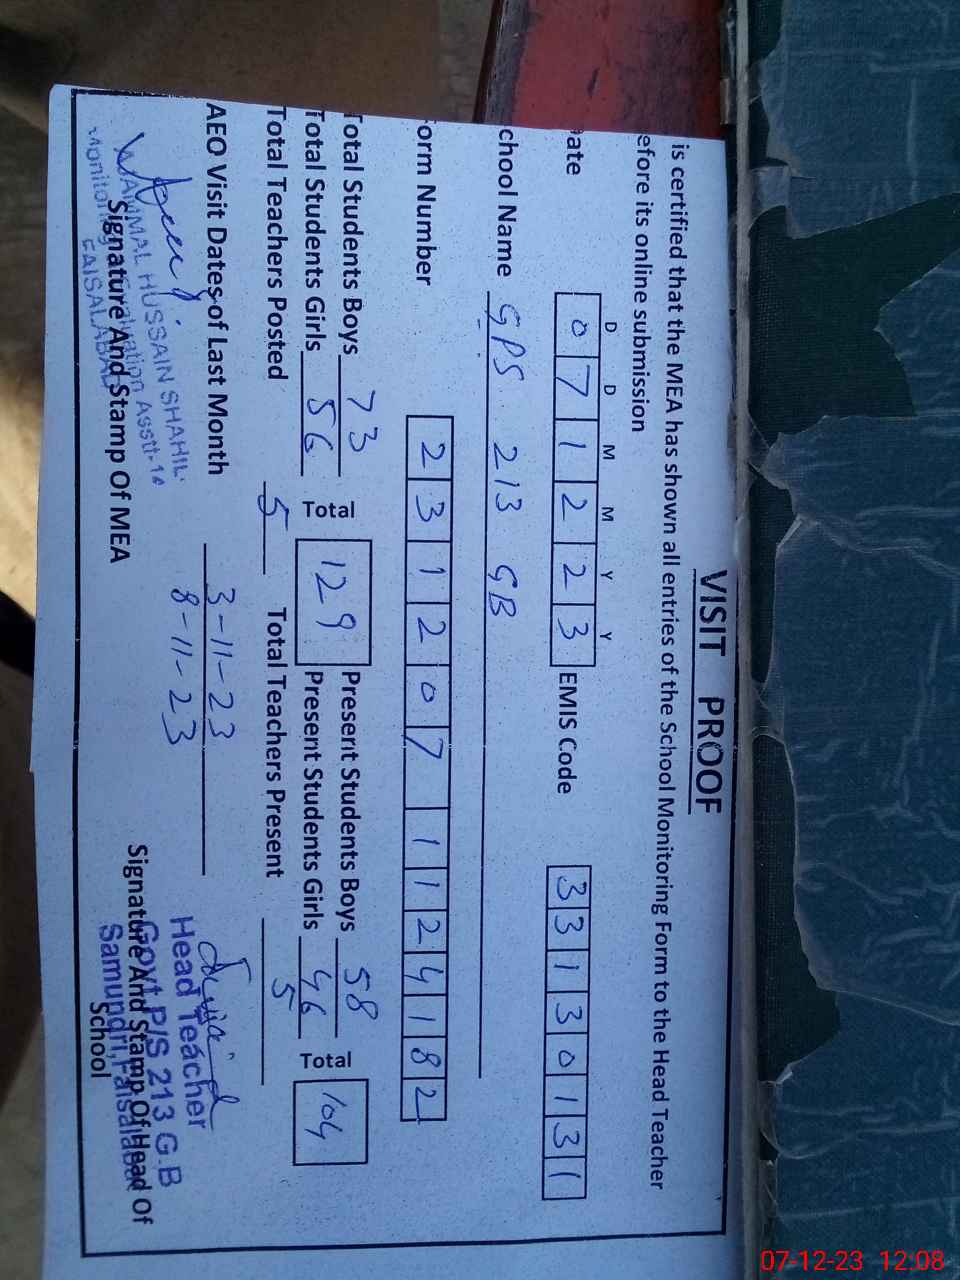 VISIT PROOF
is certified that the MEA has shown all entries of the School Monitoring Form to the Head Teacher
efore its online submission
D D M M Y Y
ate 0 7 1 2 2 3 EMIS Code 3 3 1 3 0 1 3 1
chool Name GPS 213 GB
orm Number 2 3 1 1 2 0 7 1 1 2 4 1 8 2
Total Students Boys 73 Present Students Boys 58
Total Students Girls 56 Total 129 Present Students Girls 46 Total 104
Total Teachers Posted 5 Total Teachers Present 5
AEO Visit Dates of Last Month 3-11-23
8-11-23
HUSSAIN SHAHI
Monitoring Evaluation Asstt-
FAISALABAD
Signature And Stamp Of MEA
Head Teacher
Govt P/S 213 G.B
Samundri, Faisalabad
Signature And Stamp Of Head Of
School
07-12-23 12:08